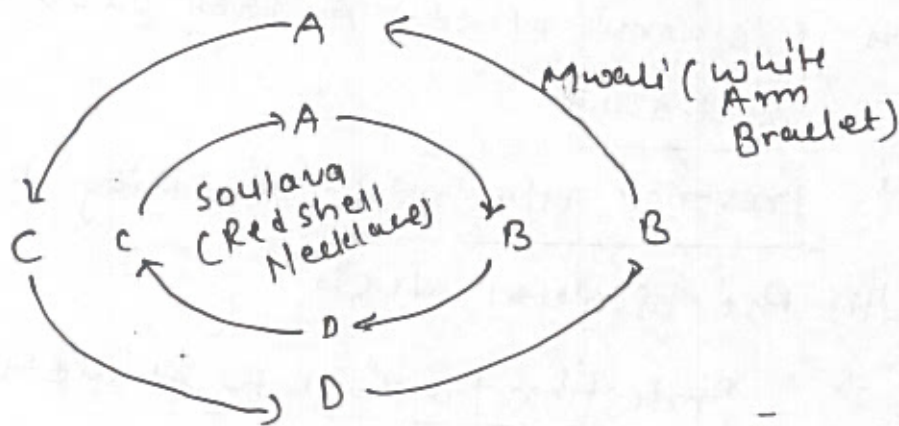 A
Mwali (White
Arm
Bracelet)
A
Soulava
(Red shell
Necklaces)
C
C
B
B
D
D